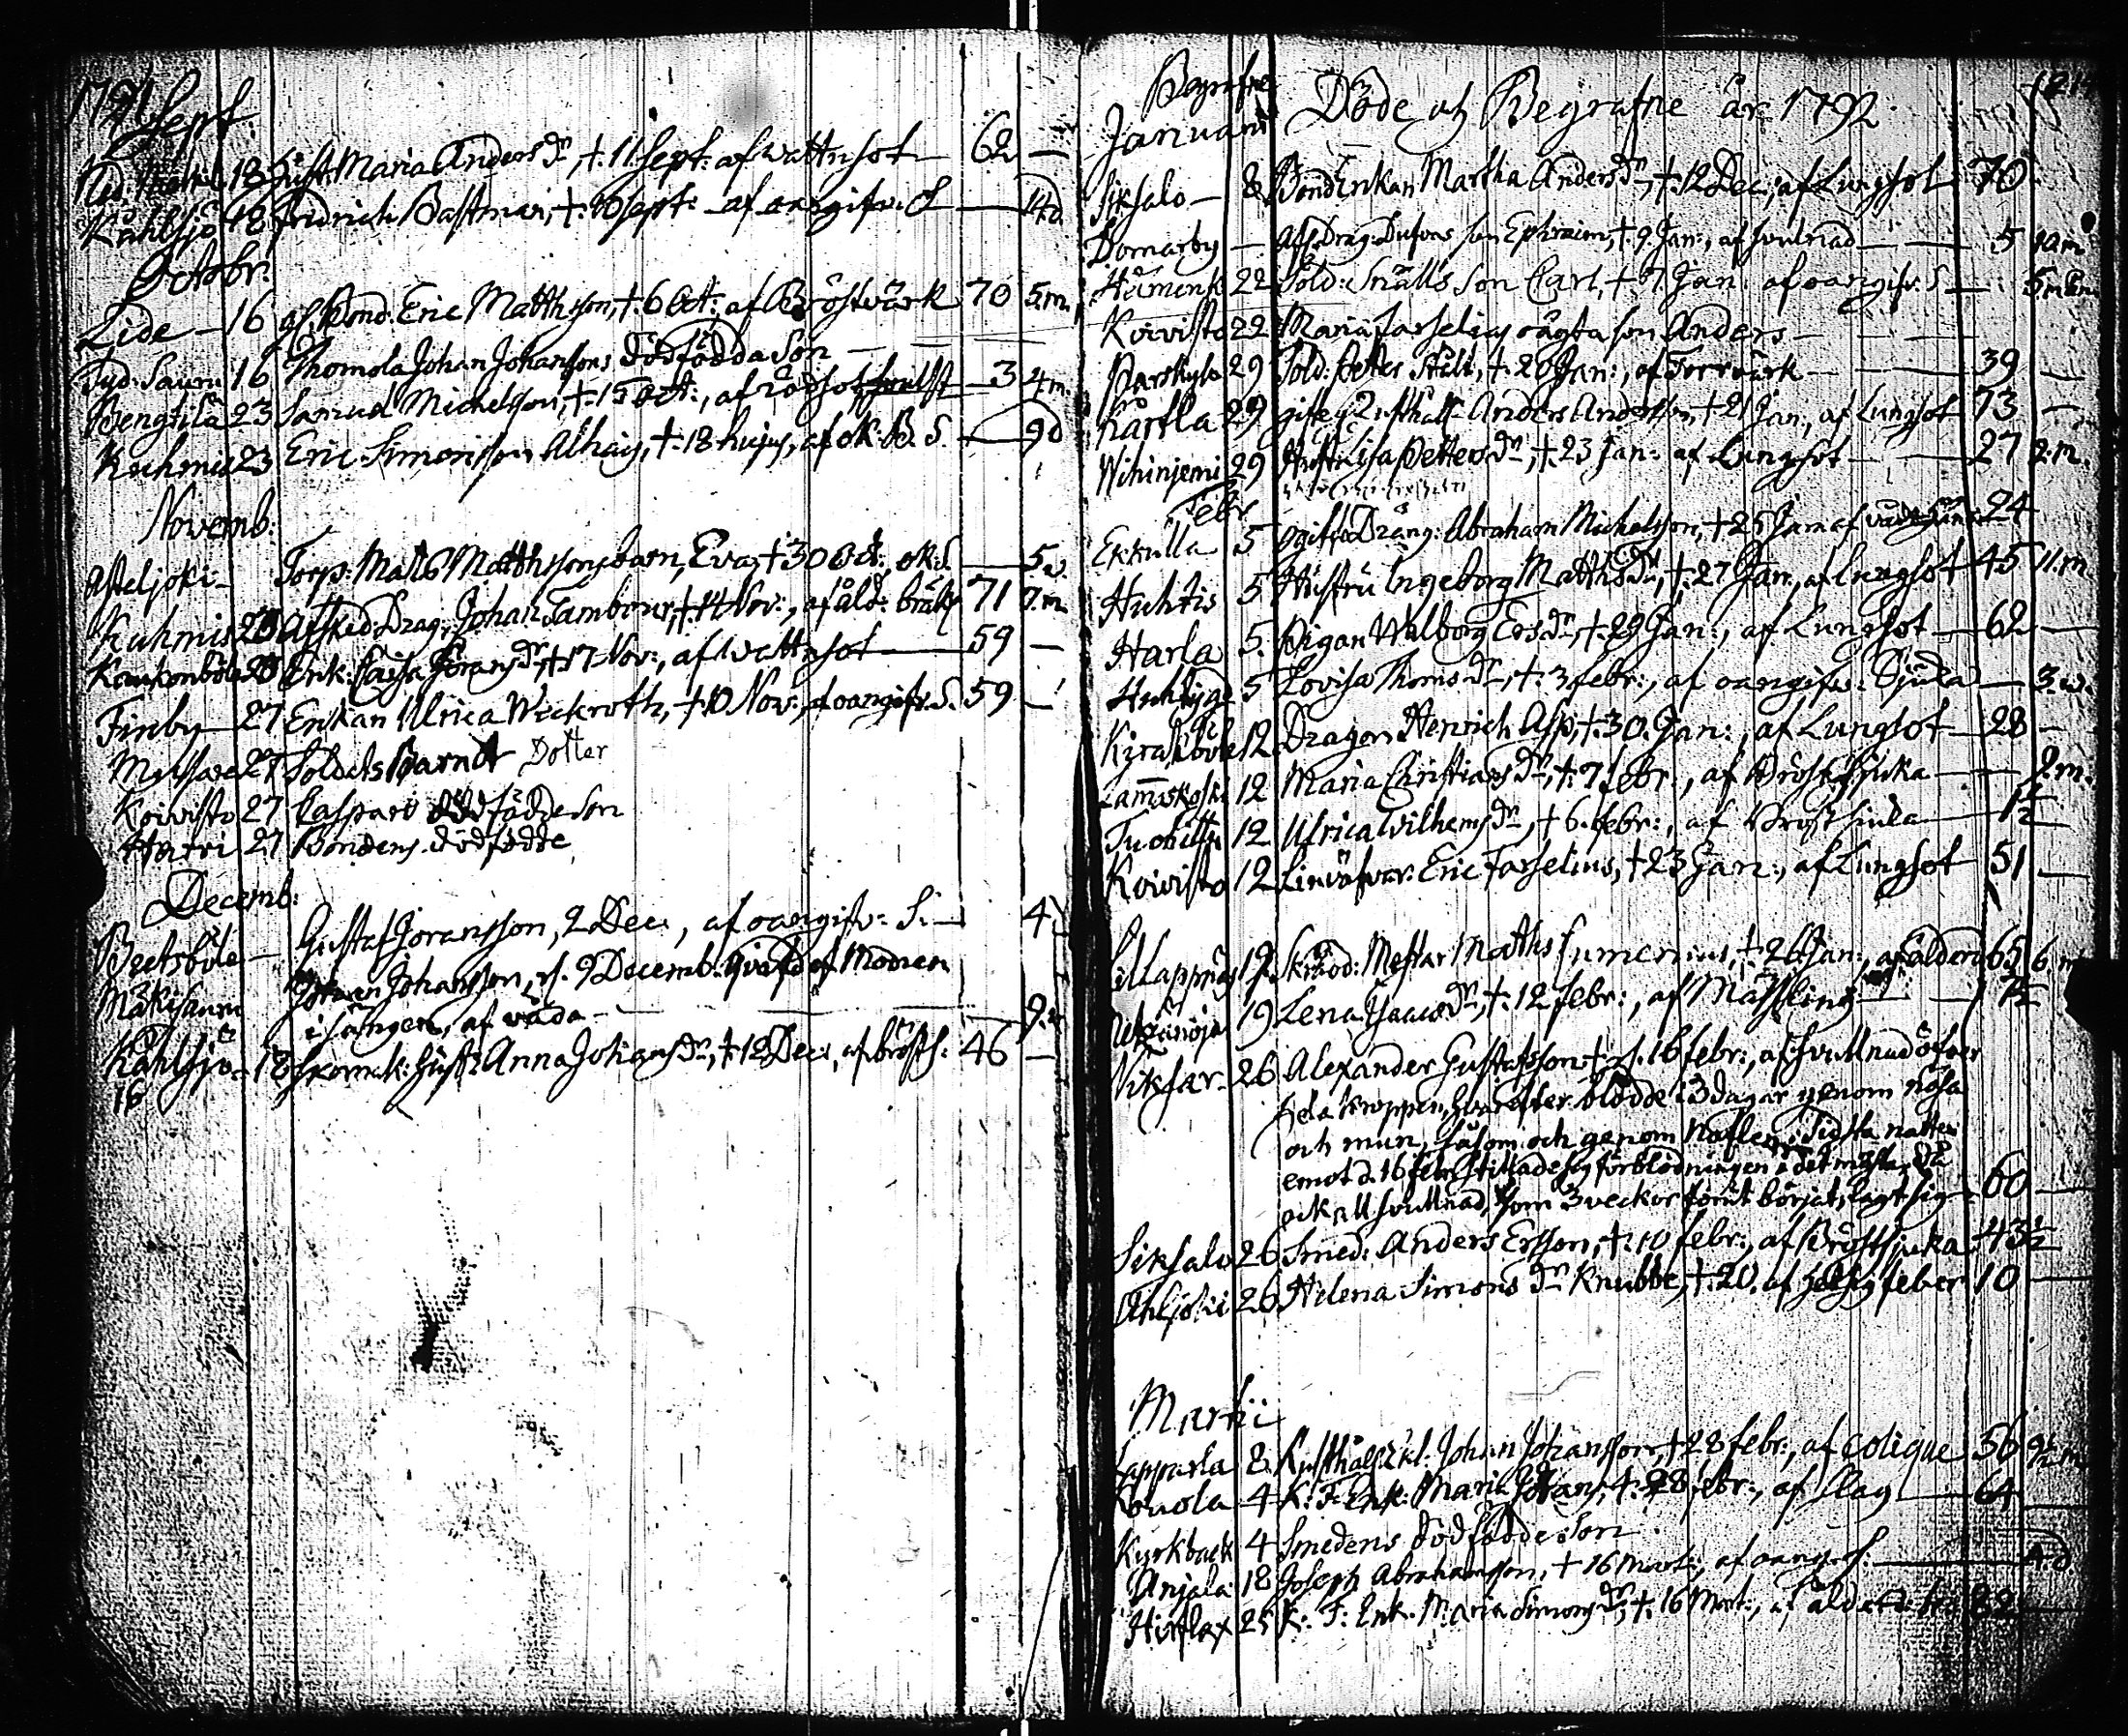 1791
Sept:
18 Hust: Maria Anders dr, †. 11 Sept: af wattnsot 62 —
Kåhlsjö 18 Fridrich Bastman, †. Sept: af oangifv: S — 14 d
Octobr:
Lide — 16 afsk. Bond. Eric Matthsson, †. 6 Oct: af Bröstvärk 70 5.m.
16 Thomola Johan Johanssons dödfödda Son
Bengtila 23 Samuel Michelsson, †. 15 Oct:, af rödsot — 3 4 m.
Kuhmis 23 Eric Simonsson Alhaig, †. 18 hujus, af ok. B. S. — 9 d
Novemb:
Torp: Matts Matthssons barn, Eva, † 30 Oct:, ok: S. — 5 w.
Kuhmis 20 Afsked Drag: Johan Tambour, †. 14 Nov:, af åld: bräkl 71 7.m.
20 Enk: Caisa Jörans dr, † 17 Nov:, af wattnsot — 59 —
Finby — 27 Enkan Ulrica Weckroth, † 10 Nov:, af oangifv. S. 59 —
27 Soldets Barndt Dotter
Koivisto 27 Caspars dödfödde Son
Hatri 27 Bondens dödfödde
Decemb:
Beetsböle — Gustaf Joransson, 2 Dec:, af oangifv: S. — 4.
Mäkisauru Johan Johansson, d. 9 Decemb. qväfd af Modren
i sängen, af våda — 9.w
Kåhlsjö — 18 hust: Anna Johans dr, †. 12 Dec:, af bröstS: 46 —
16
Begrafne Döde och Begrafne år 1792
Januarii
Siksalo — 8 Bond Enkan Martha Anders dr, †. 12 Dec:, af Lungsot 70
Domarby — Afsk. Drag: Dufvas son Ephraim, †. 9 Jan:, af svulnad — 5 10.m.
22 Sold: Snälls Son Carl, † 7 Jan: af oangifv: S —
Koivisto 22 Maria Farselius oägta son Anders —
Parskyla 29 Sold: Petter Stålt, †. 20 Jan:, af Torrvärk — 39 —
Kårtla 29 gifte Anders Andersson, † 21 Jan:, af Lungsot 73 —
29 Hustr Lisa Petters dr, †. 23 Jan: af Lungsot — 27 2.m.
Febr
Ekkulla 5 ogifte Dräng: Abraham Michelsson, † 25 Jan: af 24
Huhtis 5 Hustru Ingeborg Matths dr, †. 27 Jan:, af lungsot 45 11.m
Harla 5. Pigan Walborg Ers dr, †. 29 Jan:, af Lungsot — 62 —
5 Lovisa Thoms dr, †. 3 febr:, af oangifv: Sjuka — 3.w.
12 Dragon Henrich Asp, †. 30. Jan:, af Lungsot — 28 —
12 Maria Christians dr, †. 7 febr:, af Bröstsjuka — 2.m.
12 Ulrica Wilhems dr, † 6. febr:, af Bröstsjuka — 1½
Koivisto 12 Linväfvar: Eric Farselius, † 23 Jan:, af Lungsot 51 —
19 Skräd: Mestar Matths Sumerius, †. 26 Jan:, af ålderd 65 6 m
19 Lena Isaacs dr, †. 12 febr:, af Mässling —
26 Alexander Gustafsson, †. d. 16 febr:, af svullnad öfver
hela kroppen, hvarefter blödde i 3 dagar genom näsa
och mun, såsom och genom naflen, Sidsta natten
emot d. 16 febr: stillade sig förblödningen i det mästa, då
ock all svullnad, som 3 veckor förut börjat, lagt sig — 60 —
Siksalo 26 Smed: Anders Ersson, †. 10 febr:, af Bröstsjuka 43½
26 Helena Simons dr Knubbe, †. 20. af hetsig feber 10 —
Martii
Lapparla 8 Rusthåls Johan Johansson, † 28 febr:, af Colique 56
4 K: F: Enk: Maria Johans, †. 28 febr:, af slag — 64
Kyrkback 4 Smedens dödfödde Son
Anjala 18 Joseph Abrahamsson, † 16 Mart:, af oang. S: — 4.d
25 K: F: Enk. Maria Simons dr, †. 16 Mart:, af 82